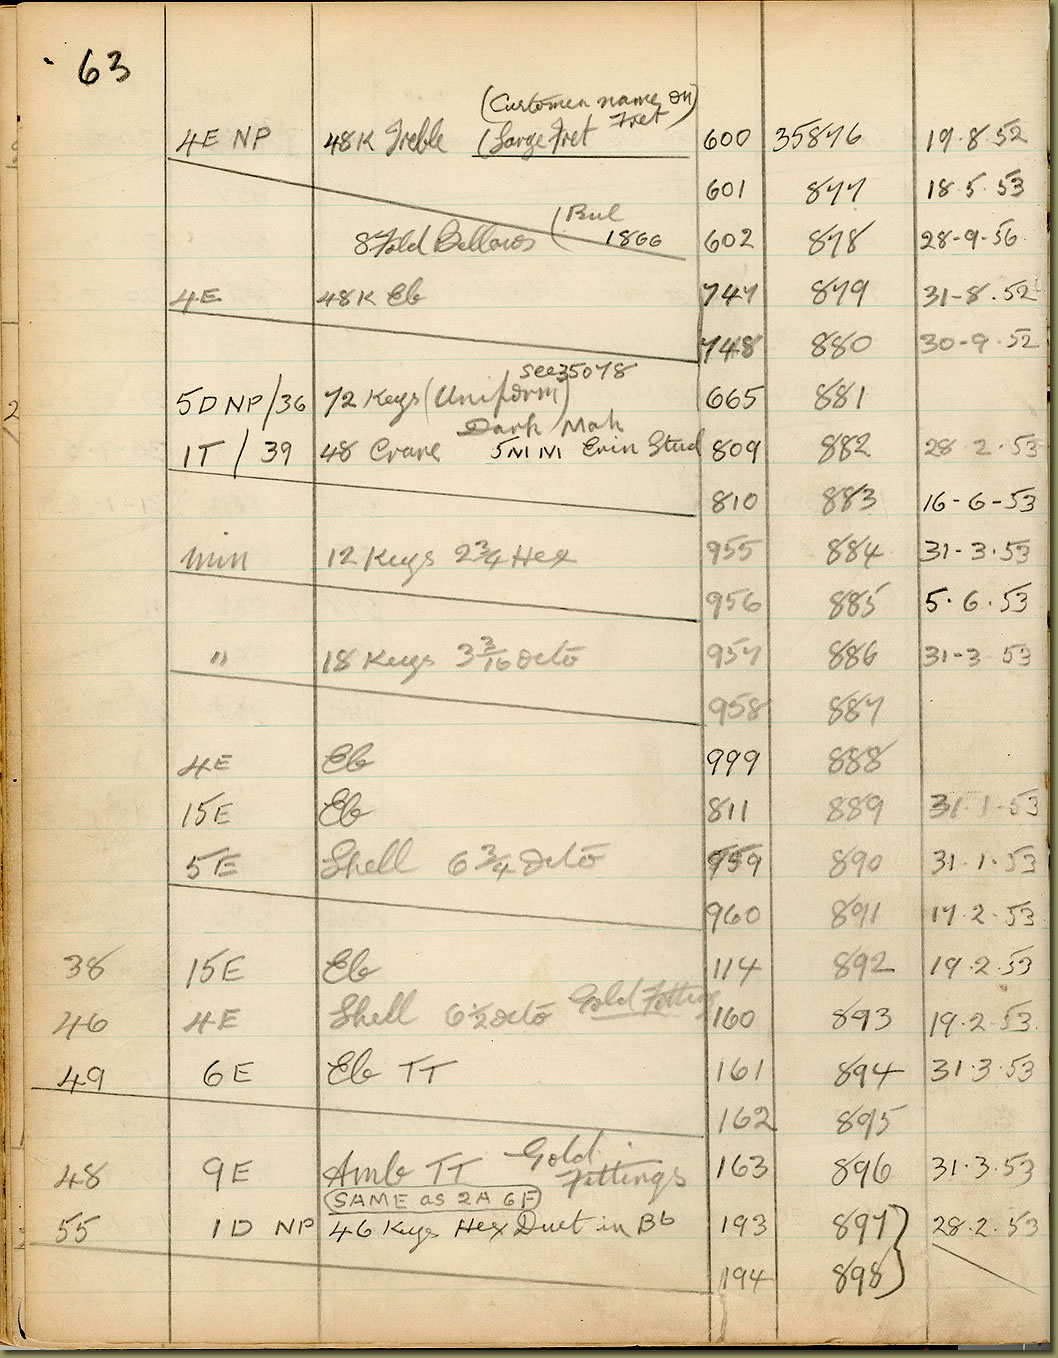 63
(Customer name on
Fret)
4E NP 48K Treble (Large Fret 600 35876 19.8.52
601 877 18.5.53
8 Fold Bellows ( 1866 602 878 28-9-56
4E 48K Eb 747 879 31-8.52
748 880 30-9-52
see 35078
5D NP/36 72 Keys (Uniform) 665 881
Dark Mah
1T / 39 48 Crane Erin Stud 809 882 28.2.53
810 883 16-6-53
min 12 Keys 2 3/4 Hex 955 884 31-3.53
956 885 5.6.53
" 18 Keys 3 3/16 Octo 957 886 31-3 53
958 887
4E Eb 999 888
15E Eb 811 889 31.1-53
5E Shell 6 3/4 Octo 959 890 31.1.53
960 891 17.2.53
38 15E Eb 114 892 19.2.53
46 4E Shell 6 1/2 Octo Gold Fitting 160 893 19.2-53.
49 6E Eb TT 161 894 31.3.53
162 895
48 9E Amb TT Gold Fittings 163 896 31.3.53
SAME as 2A 6F
55 1D NP 46 Keys Hex Duet in Bb 193 897 28.2.53
194 898